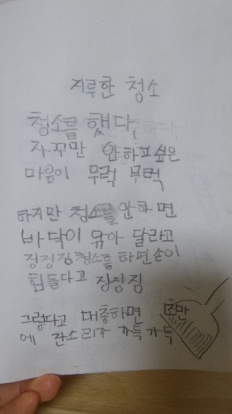 지루한 청소
청소를 했다,
자꾸만 안하고싶은
마음이 무럭 무럭
하지만 청소를 안하면
바닥이 유아 달라고
징징징 청소를 하면 손이
힘들다고 징징징
그렇다고 대충하면
에 잔소리가 가득가득